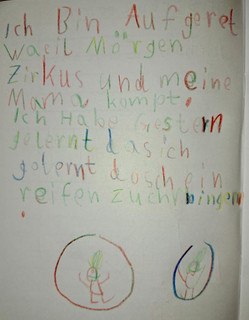 ich Bin Aufgeret
wacil Mörgen
Zirkus und meine
Mama kompt.
Ich Habe Gestern
gelernt das ich
golernt dosch ein
reifen zuchringen
.